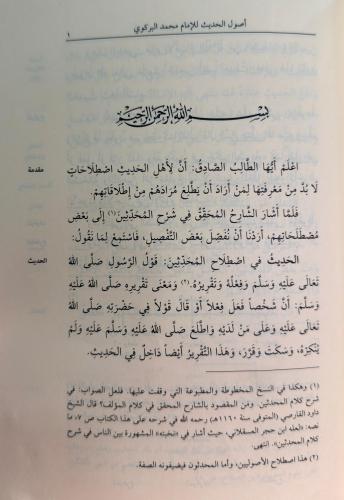 أصول الحديث للإمام محمد البركوي
١
بِسْمِ اللهِ الرَّحْمٰنِ الرَّحِيمِ
مقدمة
اعْلَمْ أَيُّهَا الطَّالِبُ الصَّادِقُ: أَنَّ لِأَهْلِ الحَدِيثِ اصْطِلَاحَاتٍ
لَا بُدَّ مِنْ مَعْرِفَتِهَا لِمَنْ أَرَادَ أَنْ يَطَّلِعَ مُرَادَهُمْ مِنْ إِطْلَاقَاتِهِمْ.
فَلَمَّا أَشَارَ الشَّارِحُ المُحَقِّقُ فِي شَرْحِ المُحَدِّثِينَ(١) إِلَى بَعْضِ
مُصْطَلَحَاتِهِمْ، أَرَدْنَا أَنْ نُفَصِّلَ بَعْضَ التَّفْصِيلِ، فَاسْتَمِعْ لِمَا نَقُولُ:
الحديث
الحَدِيثُ فِي اصْطِلَاحِ المُحَدِّثِينَ: قَوْلُ الرَّسُولِ صَلَّى اللهُ
تَعَالَى عَلَيْهِ وَسَلَّمَ وَفِعْلُهُ وَتَقْرِيرُهُ.(٢) وَمَعْنَى تَقْرِيرِهِ صَلَّى اللهُ عَلَيْهِ
وَسَلَّمَ: أَنَّ شَخْصاً فَعَلَ فِعْلاً أَوْ قَالَ قَوْلاً فِي حَضْرَتِهِ صَلَّى اللهُ
تَعَالَى عَلَيْهِ وَعَلَى مَنْ لَدَيْهِ وَاطَّلَعَ صَلَّى اللهُ عَلَيْهِ وَسَلَّمَ عَلَيْهِ وَلَمْ
يُنْكِرْهُ، وَسَكَتَ وَقَرَّرَ، وَهَذَا التَّقْرِيرُ أَيْضاً دَاخِلٌ فِي الحَدِيثِ.
(١) وهكذا في النسخ المخطوطة والمطبوعة التي وقفت عليها. فلعل الصواب: في
شرح كلام المحدثين. ومن المقصود بالشارح المحقق في كلام المؤلف؟ قال الشيخ
داود القارصي (المتوفى سنة ١١٦٠هـ) رحمه الله في شرحه على هذا الكتاب ص ٧، ما
نصه: «لعله ابن حجر العسقلاني، حيث أشار في «نخبته» المشهورة بين الناس في شرح
كلام المحدثين». انتهى.
(٢) هذا اصطلاح الأصوليين، وأما المحدثون فيضيفونه الصفة.